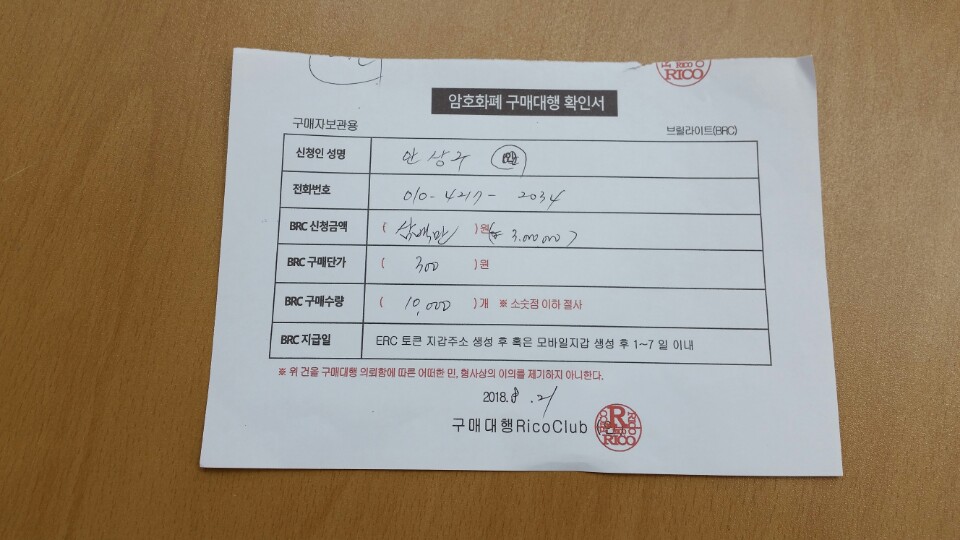 RICO
암호화폐 구매대행 확인서
구매자보관용 브릴라이트(BRC)
신청인 성명 안상구
전화번호 010-4217-2034
BRC 신청금액 ( 삼백만 )원 (₩ 3,000,000)
BRC 구매단가 ( 300 )원
BRC 구매수량 ( 10,000 )개 ※ 소숫점 이하 절사
BRC 지급일 ERC 토큰 지갑주소 생성 후 혹은 모바일지갑 생성 후 1~7 일 이내
※ 위 건을 구매대행 의뢰함에 따른 어떠한 민, 형사상의 이의를 제기하지 아니한다.
2018. 8. 21
구매대행RicoClub
R
RICO